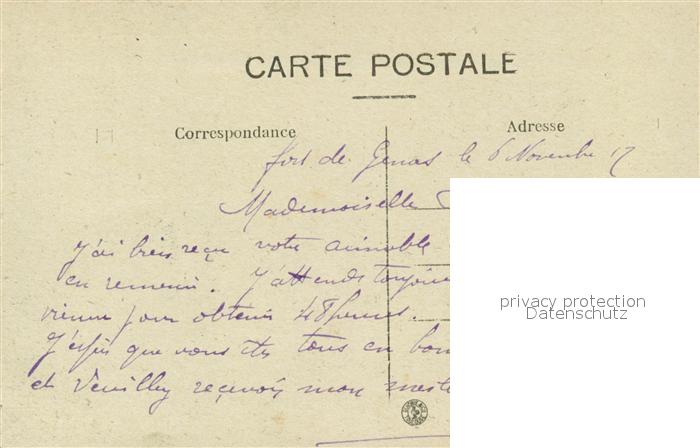 CARTE POSTALE
Correspondance
Adresse
fort de Genas le 6 Novembre 17
Mademoiselle
J'ai bien reçu votre aimable
en remercie. J'attends toujours
pour obtenir 48 heures.
J'espère que vous êtes tous en bon
et Veuillez recevoir mon
privacy protection
Datenschutz